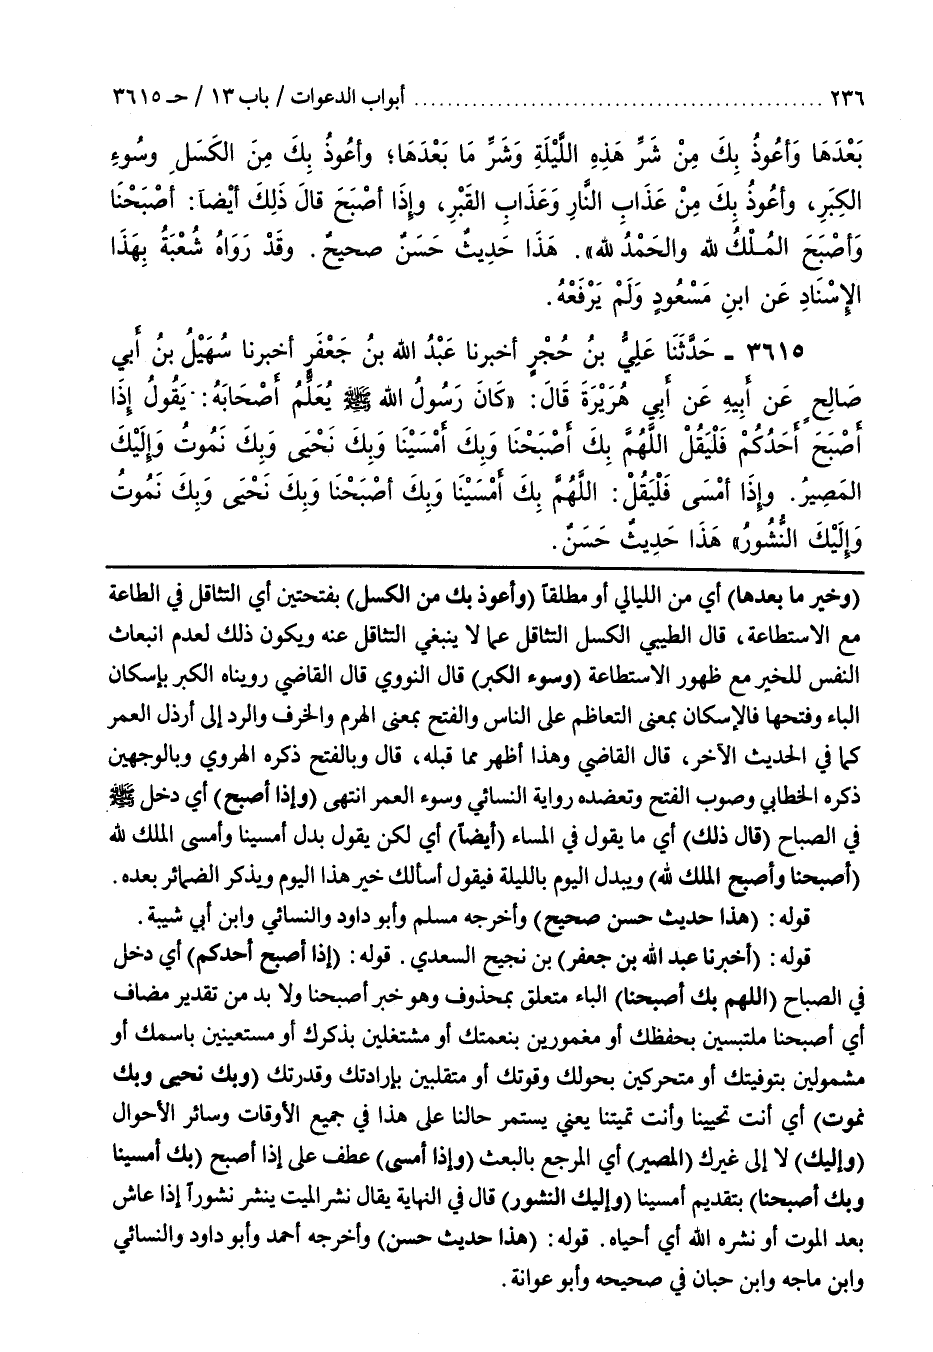 ٢٣٦ ................................................ أبواب الدعوات / باب ١٣ / حـ ٣٦١٥
بَعْدَهَا وَأعُوذُ بِكَ مِنْ شَرِّ هَذِهِ اللَّيْلَةِ وَشَرِّ مَا بَعْدَهَا؛ وأعُوذُ بِكَ مِنَ الكَسَلِ وسُوءِ
الكِبَرِ، وأعُوذُ بِكَ مِنْ عَذَابِ النَّارِ وَعَذَابِ القَبْرِ، وإِذَا أصْبَحَ قالَ ذَلِكَ أيْضاً: أصْبَحْنَا
وَأصْبَحَ المُلْكُ لله والحَمْدُ لله». هَذَا حَدِيثٌ حَسَنٌ صحيحٌ. وقَدْ رَوَاهُ شُعْبَةُ بِهَذَا
الإِسْنَادِ عَن ابنِ مَسْعُودٍ وَلَمْ يَرْفَعْهُ.
٣٦١٥ - حَدَّثَنَا عَلِيُّ بنُ حُجْرٍ أخبرنا عَبْدُ الله بنُ جَعْفَرٍ أخبرنا سُهَيْلُ بنُ أبي
صَالِحٍ عَن أَبِيهِ عَن أَبِي هُرَيْرَةَ قَالَ: «كَانَ رَسُولُ الله ﷺ يُعَلِّمُ أَصْحَابَهُ: يَقُولُ إِذَا
أَصْبَحَ أَحَدُكُمْ فَلْيَقُلْ اللَّهُمَّ بِكَ أَصْبَحْنَا وَبِكَ أَمْسَيْنَا وَبِكَ نَحْيَى وَبِكَ نَمُوتُ وَإِلَيْكَ
المَصِيرُ. وإِذَا أمْسَى فَلْيَقُلْ: اللَّهُمَّ بِكَ أَمْسَيْنَا وَبِكَ أصْبَحْنَا وَبِكَ نَحْيَى وَبِكَ نَمُوتُ
وَإِلَيْكَ النُّشُورُ» هَذَا حَدِيثٌ حَسَنٌ.
(وخير ما بعدها) أي من الليالي أو مطلقاً (وأعوذ بك من الكسل) بفتحتين أي التثاقل في الطاعة
مع الاستطاعة، قال الطيبي الكسل التثاقل عما لا ينبغي التثاقل عنه ويكون ذلك لعدم انبعاث
النفس للخير مع ظهور الاستطاعة (وسوء الكبر) قال النووي قال القاضي رويناه الكبر بإسكان
الباء وفتحها فالإسكان بمعنى التعاظم على الناس والفتح بمعنى الهرم والخرف والرد إلى أرذل العمر
كما في الحديث الآخر، قال القاضي وهذا أظهر مما قبله، قال وبالفتح ذكره الهروي وبالوجهين
ذكره الخطابي وصوب الفتح وتعضده رواية النسائي وسوء العمر انتهى (وإذا أصبح) أي دخل ﷺ
في الصباح (قال ذلك) أي ما يقول في المساء (أيضاً) أي لكن يقول بدل أمسينا وأمسى الملك لله
(أصبحنا وأصبح الملك لله) ويبدل اليوم بالليلة فيقول أسألك خير هذا اليوم ويذكر الضمائر بعده.
قوله: (هذا حديث حسن صحيح) وأخرجه مسلم وأبو داود والنسائي وابن أبي شيبة.
قوله: (أخبرنا عبد الله بن جعفر) بن نجيح السعدي. قوله: (إذا أصبح أحدكم) أي دخل
في الصباح (اللهم بك أصبحنا) الباء متعلق بمحذوف وهو خبر أصبحنا ولا بد من تقدير مضاف
أي أصبحنا ملتبسين بحفظك أو مغمورين بنعمتك أو مشتغلين بذكرك أو مستعينين باسمك أو
مشمولين بتوفيتك أو متحركين بحولك وقوتك أو متقلبين بإرادتك وقدرتك (وبك نحيى وبك
نموت) أي أنت تحيينا وأنت تميتنا يعني يستمر حالنا على هذا في جميع الأوقات وسائر الأحوال
(وإليك) لا إلى غيرك (المصير) أي المرجع بالبعث (وإذا أمسى) عطف على إذا أصبح (بك أمسينا
وبك أصبحنا) بتقديم أمسينا (وإليك النشور) قال في النهاية يقال نشر الميت ينشر نشوراً إذا عاش
بعد الموت أو نشره الله أي أحياه. قوله: (هذا حديث حسن) وأخرجه أحمد وأبو داود والنسائي
وابن ماجه وابن حبان في صحيحه وأبو عوانة.